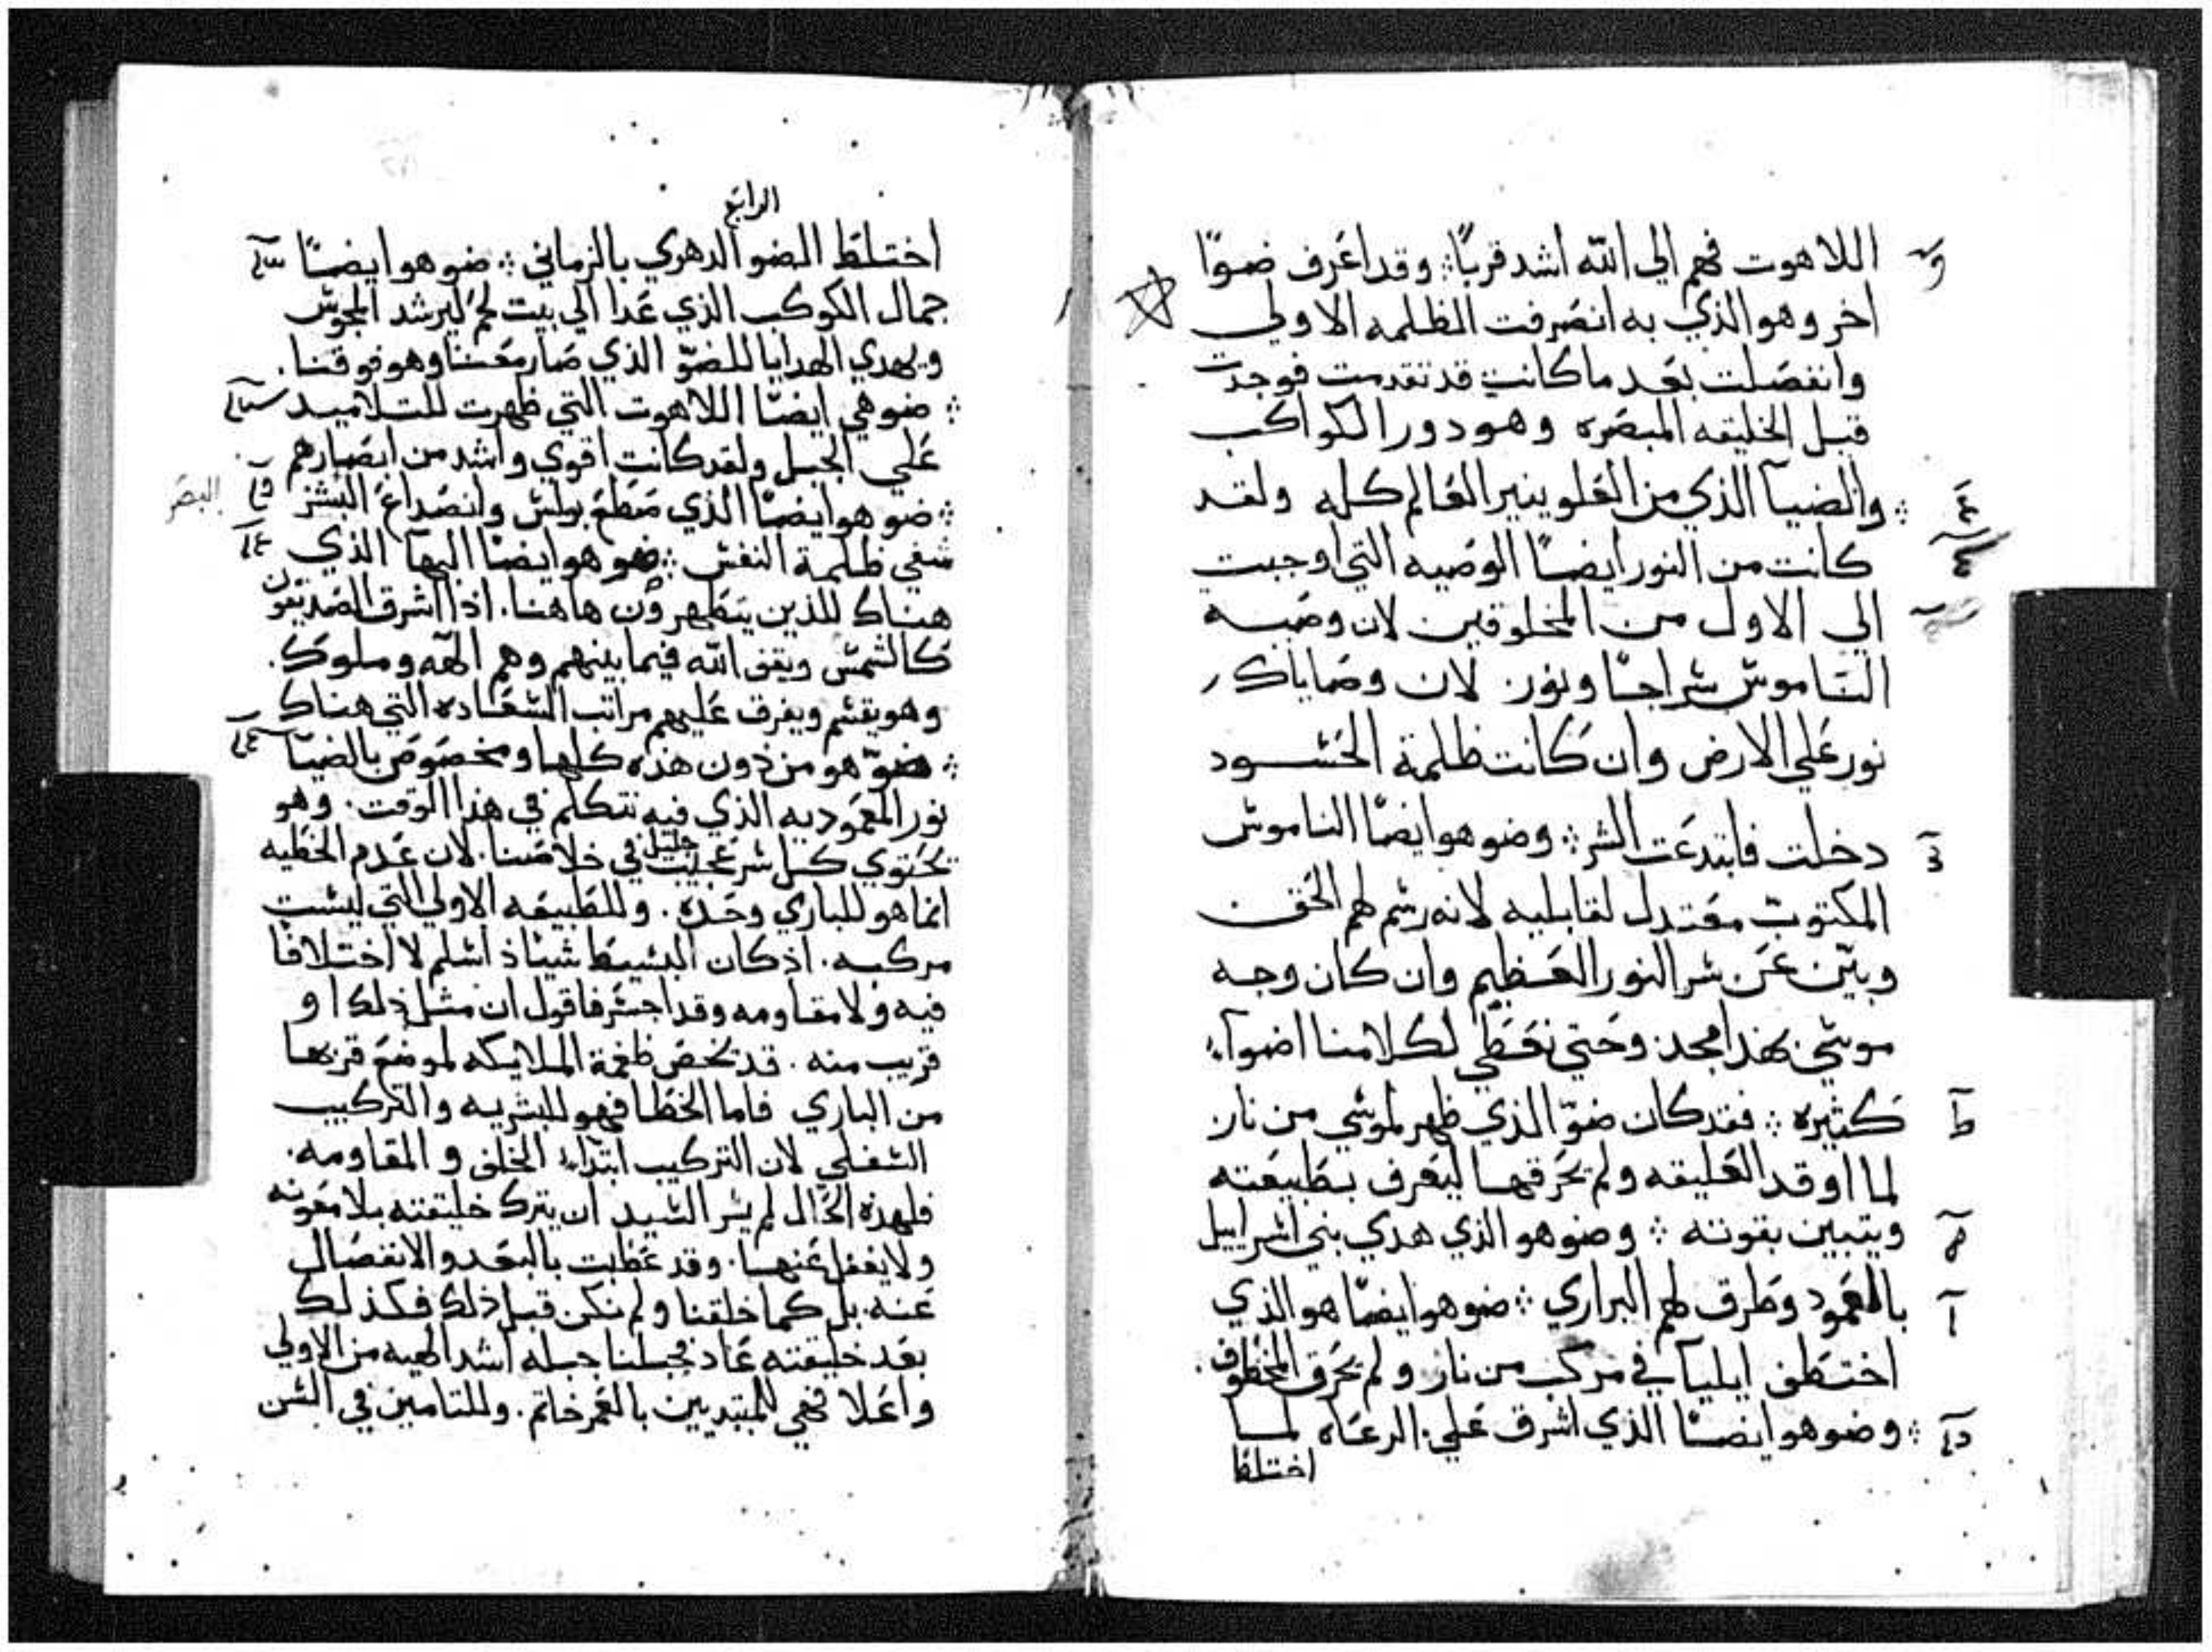 اللاهوت فهم الي الله اشد قربًا ⁘ وقد اعرف ضوًا
اخر وهو الذي به انصرفت الظلمه الاولي
وانفصلت بعد ما كانت قد تقدمت فوجدت
قبل الخليقه المبصره وهو دور الكواكب
⁘ والضيآ الذي من العلو ينير العالم كله ولقد
كانت من النور ايضًا الوصيه التي اوجبت
الي الاول من المخلوقين لان وصيه
الناموس سراجًا ونور. لان وصاياك
نور علي الارض وان كانت ظلمة الحسود
دخلت فابتدعت الشر ⁘ وضو هو ايضًا الناموس
المكتوب معتدل لقابليه لانه رسم لهم الحق
وبيّن عن سر النور العظيم وان كان وجه
موسي بهذا مجد. وحتي نعطي لكلامنا اضوآء
كثيره ⁘ فقد كان ضوّا الذي ظهر لموسي من نار
لما اوقد العليقه ولم يحرقها ليعرف بطبيعته
ويتبين بقوته ⁘ وضو هو الذي هدي بني اسراييل
بالعمود وطرق لهم البراري ⁘ ضو هو ايضًا هو الذي
اختطف ايليآ في مركب من نار ولم يحرق المخطوف.
⁘ وضو هو ايضًا الذي اشرق علي الرعاه لما
اختلط
الرابع
اختلط الضو الدهري بالزماني ⁘ ضو هو ايضًا
جمال الكوكب الذي غدا الي بيت لحم ليرشد المجوس
ويهدي الهدايا للضوّ الذي صار معنا وهو فوقنا.
⁘ ضو هي ايضًا اللاهوت التي ظهرت للتلاميد
علي الجبل ولقد كانت اقوي واشد من ابصارهم
⁘ ضو هو ايضًا الذي سطع بولس وانصداع البشر
البصر
شفي ظلمة النفس ⁘ ضو هو ايضًا البهآ الذي
هناك للذين يتطهرون هاهنا. اذا اشرق الصديقون
كالشمس ويقف الله فيما بينهم وهم الهه وملوك.
وهو يقسم ويفرق عليهم مراتب السعاده التي هناك
⁘ ضوّ هو من دون هذه كلها ومخصوص بالضيآ
نور المعموديه الذي فيه نتكلم في هذا الوقت. وهو
يحتوي كل سر عجيب جليل في خلاصنا. لان عدم الخطيه
انما هو للباري وحده. وللطبيعه الاولي التي ليست
مركبه. اذ كان البسيط شيئاذ اسلم لا اختلافًا
فيه ولا مقاومه وقد اجسر فاقول ان مثل ذلك او
قريب منه. قد يخص طغمة الملايكه لموضع قربها
من الباري فاما الخطا فهو للبشريه والتركيب
السفلي لان التركيب ابتداء الخلف والمقاومه.
فلهذه الحال لم يسر السيد ان يترك خليقته بلا معونه
ولا يغفل عنها. وقد عطبت بالبعد والانفصال
عنه. بل كما خلقنا ولم نكن قبل ذلك فكذلك
بعد خليقته عاد فجبلنا جبله اشد الهيه من الاولي
واعلا فهي للمبتديين بالعمر خاتم. وللتامين في السن